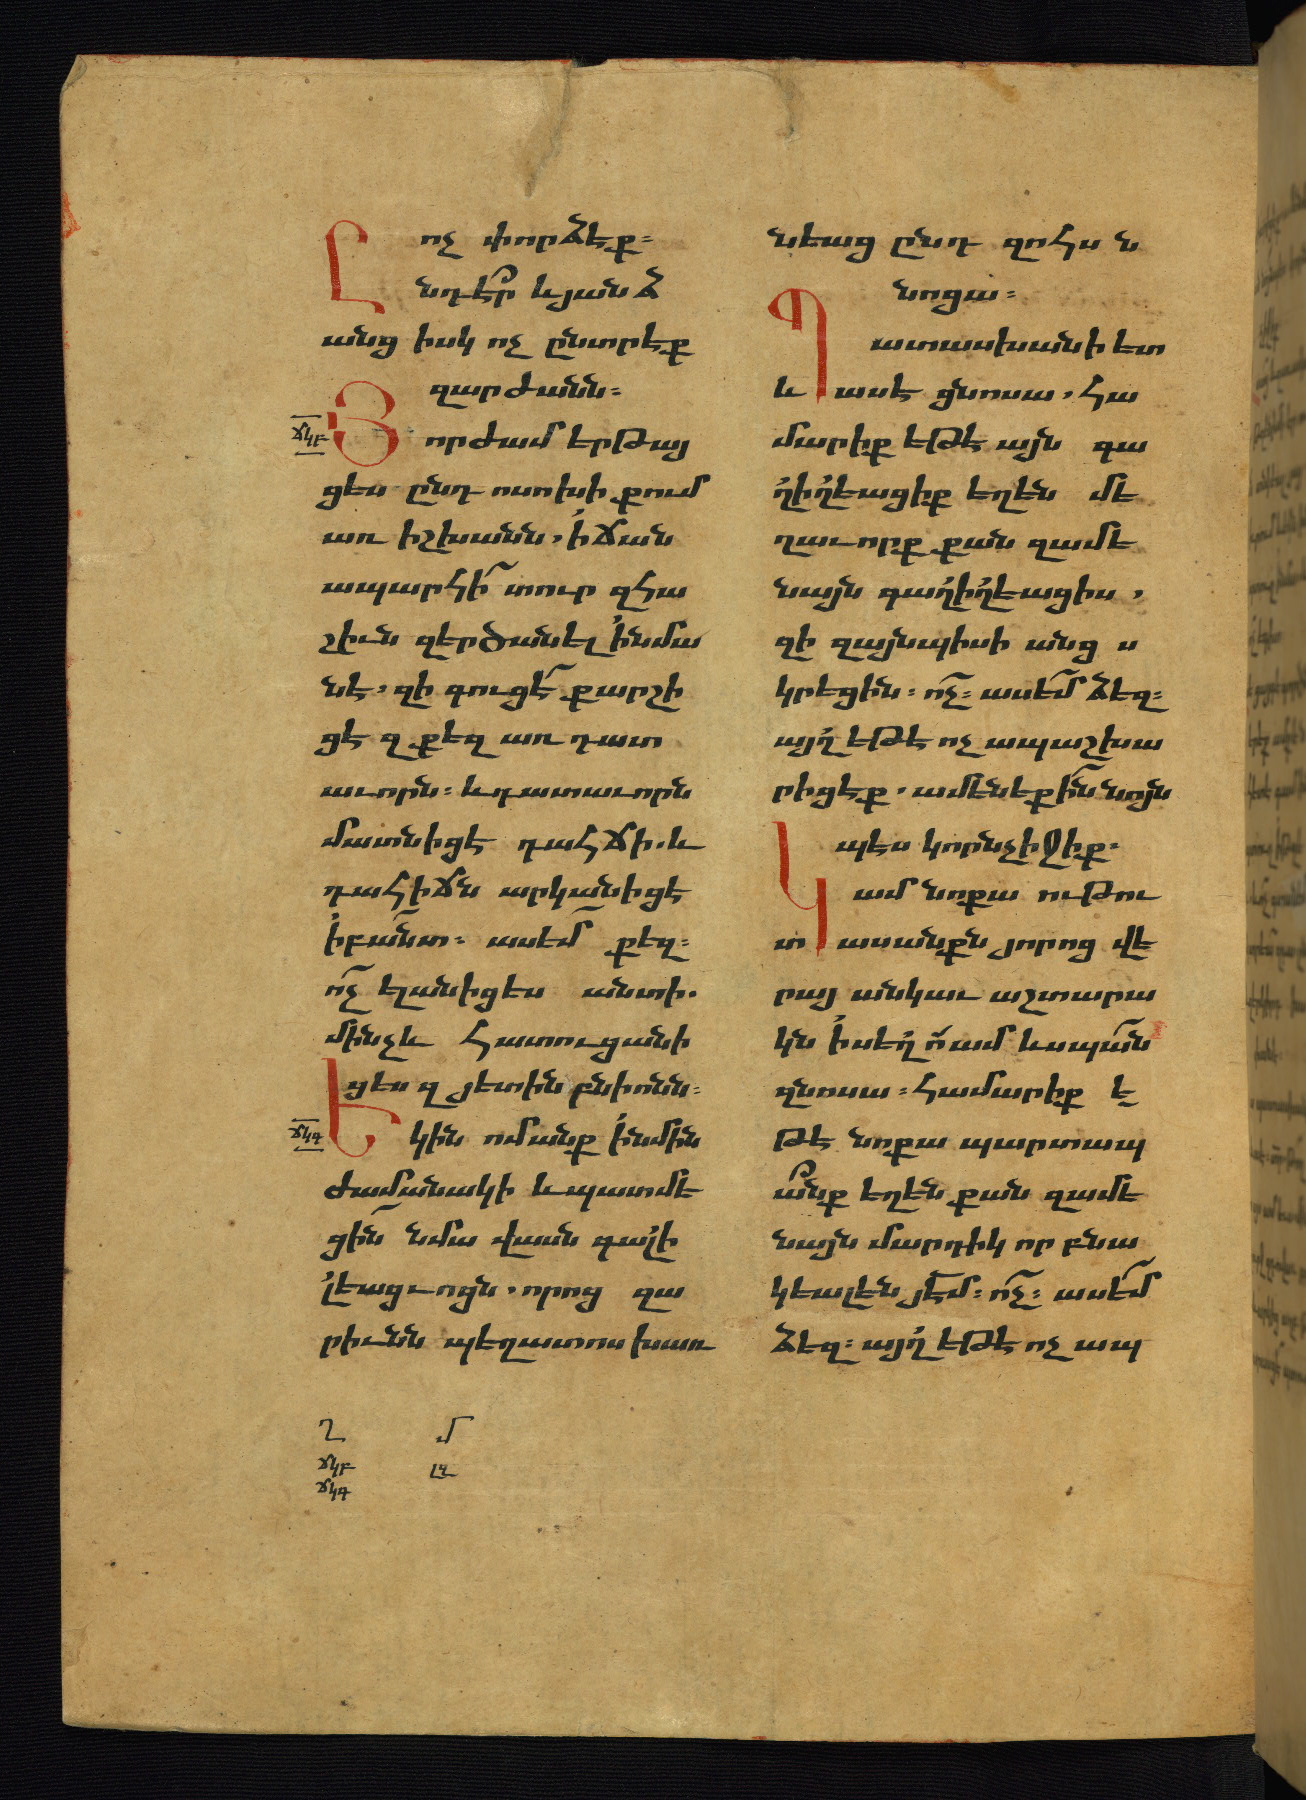 ոչ փորձէք։
Ընդէր և յանձ
անց իսկ ոչ ընտրէք
զարժանն։
ՃԿԲ Յորժամ երթայ
ցես ընդ ոսոխի քում
առ իշխանն, ի ճան
ապարհի տուր զհա
շիւն զերծանել ինմա
նէ, զի գուցէ քարշի
ցէ զքեզ առ դատ
աւորն։ և դատաւորն
մատնիցէ դահճի. և
դահիճն արկանիցէ
ի բանտ։ ասեմ քեզ։
ոչ ելանիցես անտի.
մինչև հատուցանի
ցես զյետին բնիոնն։
ՃԿԳ Եկին ոմանք ինմին
ժամանակի և պատմե
ցին նմա վասն գալի
լեացւոցն, որոց զա
րիւնն պեղատոս խառ
նեաց ընդ զոհս ն
նոցա։
Պատասխանի ետ
և ասէ ցնոսա, հա
մարիք եթէ այն գա
ղիղեացիք եղեն մե
ղաւորք քան զամե
նայն գաղիղեացիս,
զի զայնպիսի անց ս
կրեցին։ ոչ։ ասեմ ձեզ։
այղ եթէ ոչ ապաշխա
րիցէք, ամենեքին նոյն
պէս կորնչիջիք։
Կամ նոքա ութու
տասանքն յորոց վե
րայ անկաւ աշտարա
կն ի սեղովամ և սպան
զնոսա։ համարիք ե
թէ նոքա պարտապ
անք եղեն քան զամե
նայն մարդիկ որ բնա
կեալ են յեմ։ ոչ։ ասեմ
ձեզ։ այղ եթէ ոչ ապ
Ղ Մ
ՃԿԲ ԼԸ
ՃԿԳ